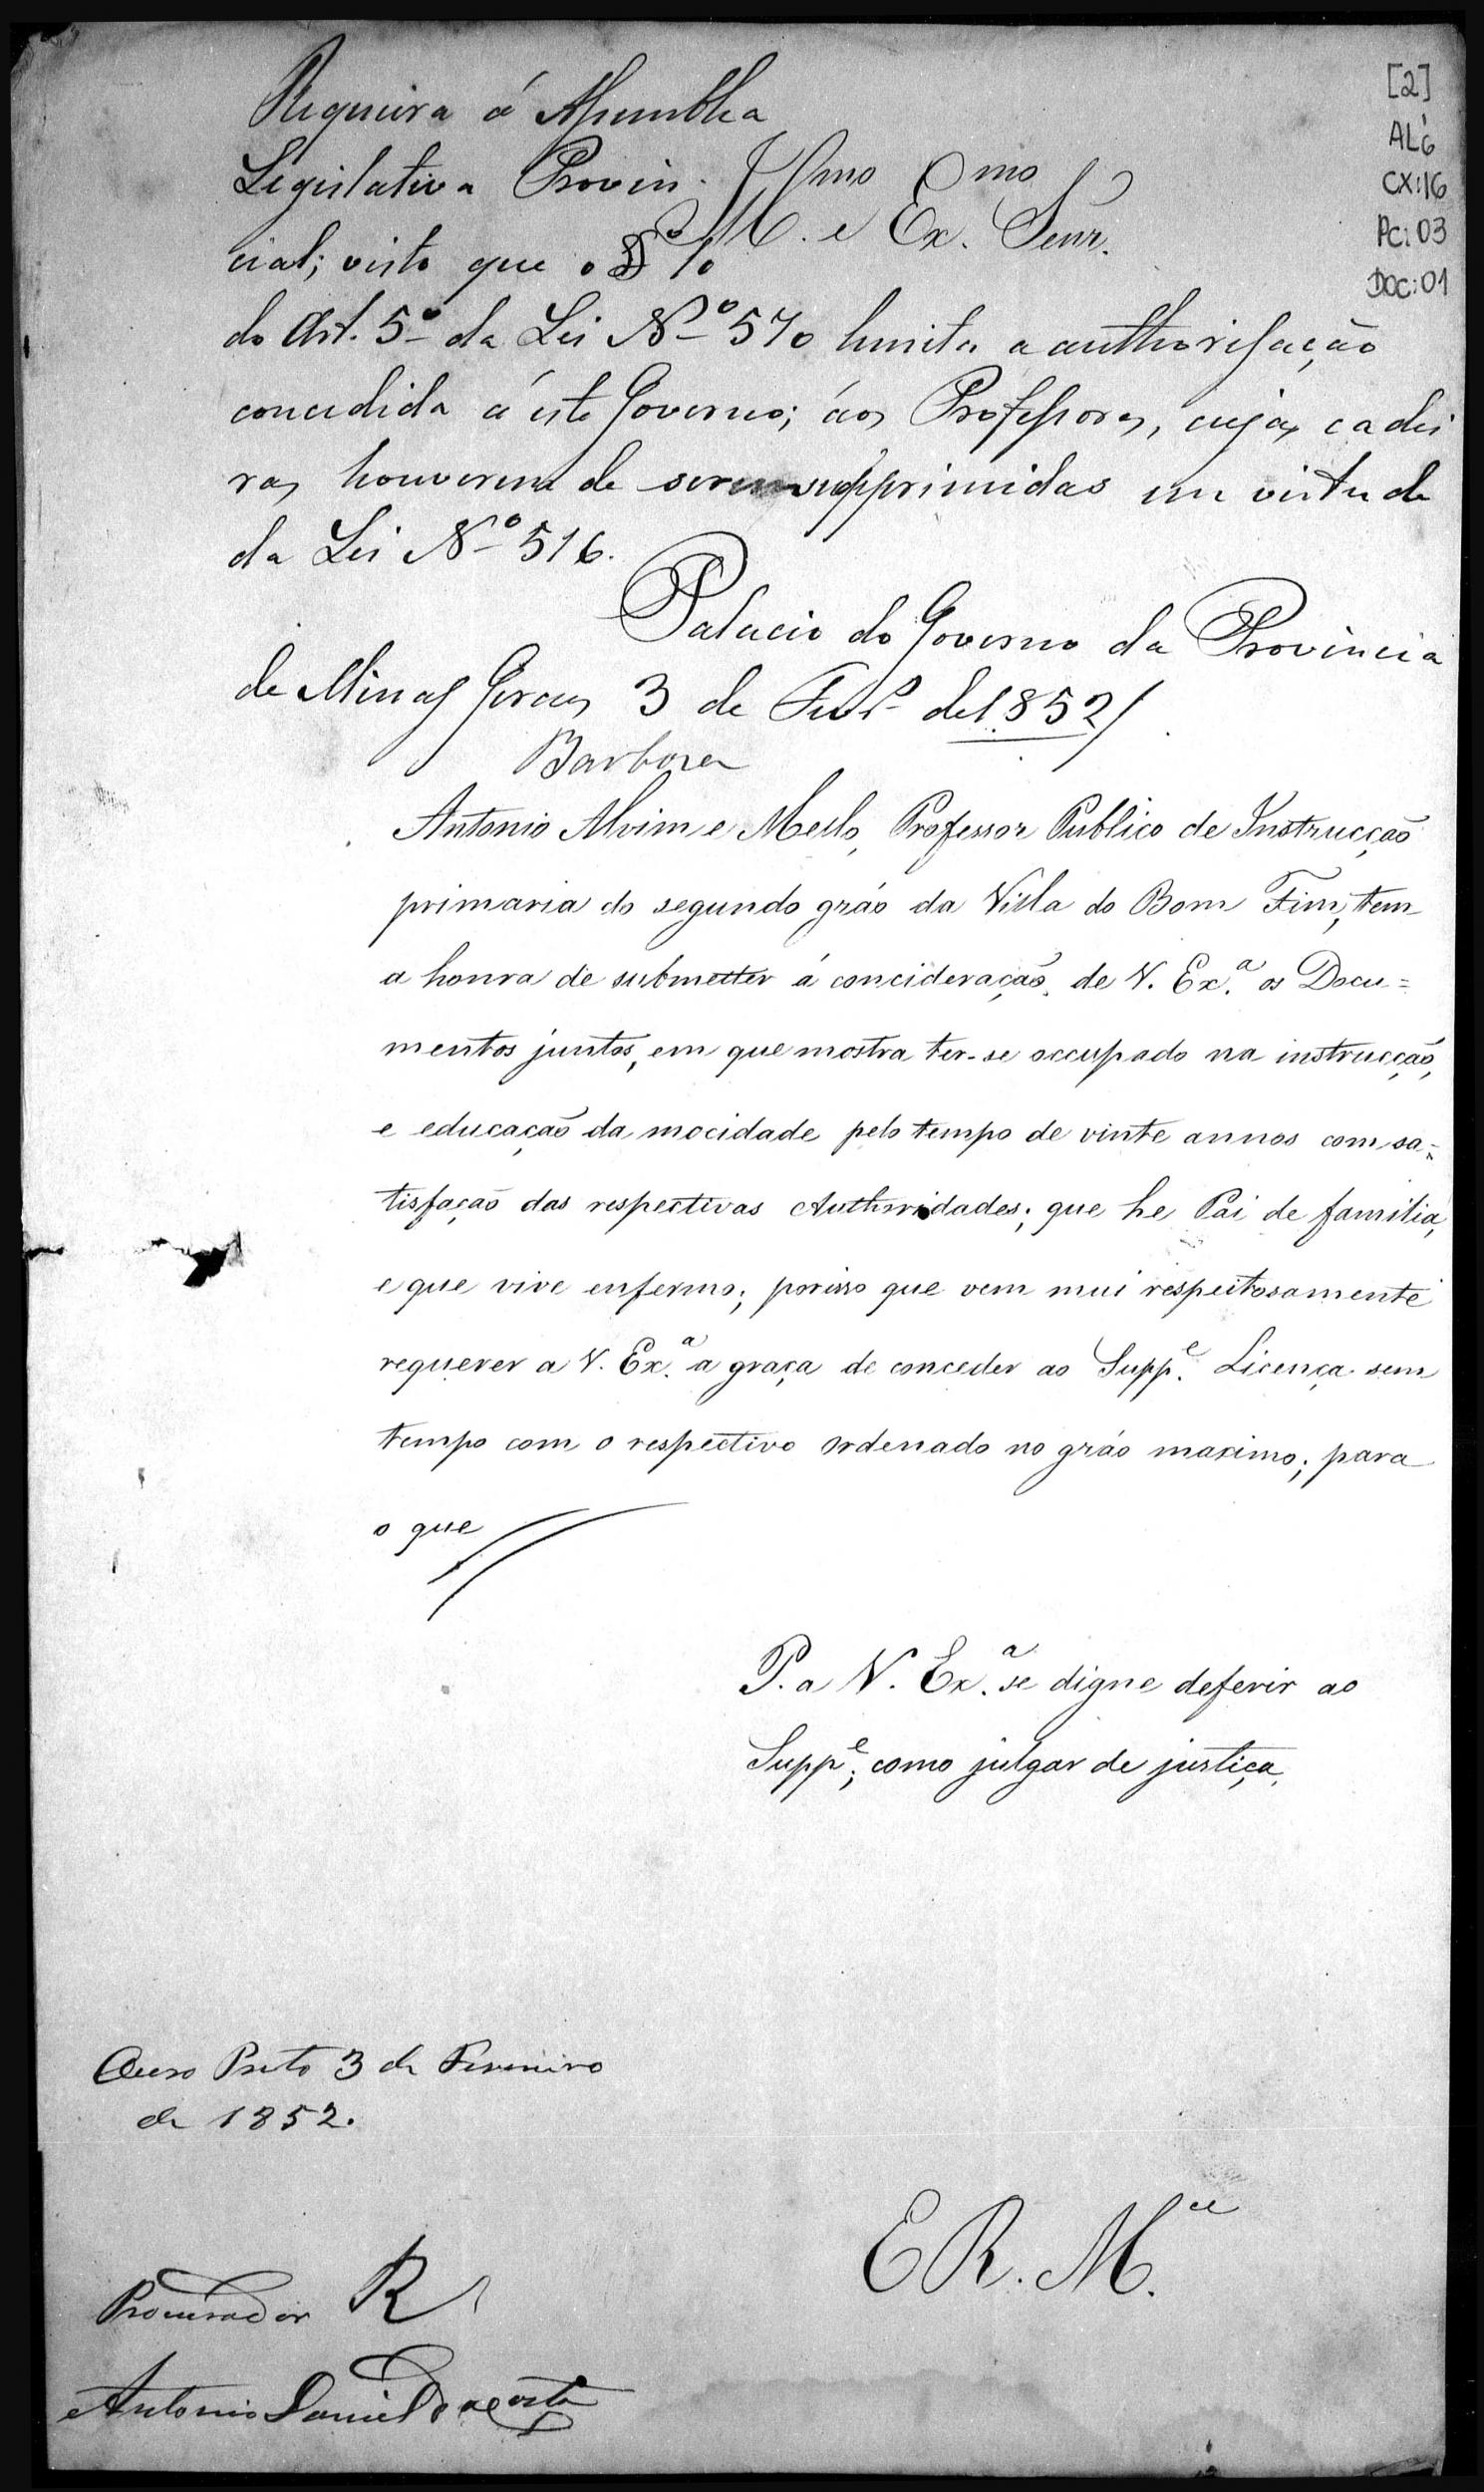 [2]
AL6
CX:16
PC:03
DOC:01
Requeira á Assemblea
Legislativa Provin-
Illmo e Exmo Senr.
cial; visto que o § 1º
do Art. 5º da Lei Nº 570 limita a authorisação
concedida á este Governo; áos Professores, cujas cadei
ras houverem de serem supprimidas em virtude
da Lei Nº 516.
Palacio do Governo da Provincia
de Minas Geraes 3 de Fevrº de 1852/
Barbosa
Antonio Alvim e Mello, Professor Publico de Instrucção
primaria do segundo gráo da Villa do Bom Fim, tem
a honra de submetter á concideração de V. Ex.ª os Docu=
mentos juntos, em que mostra ter-se occupado na instrucção,
e educação da mocidade pelo tempo de vinte annos com sa=
tisfação das respectivas Authoridades; que he Pai de familia,
e que vive enfermo; porisso que vem mui respeitosamente
requerer a V. Ex.ª a graça de conceder ao Supp.e Licença sem
tempo com o respectivo ordenado no gráo maximo; para
o que
P. a V. Ex.ª se digne deferir ao
Supp.e; como julgar de justiça.
Ouro Preto 3 de Fevereiro
de 1852.
E R. M.ce
Procurador R
Antonio Daniel da Costa